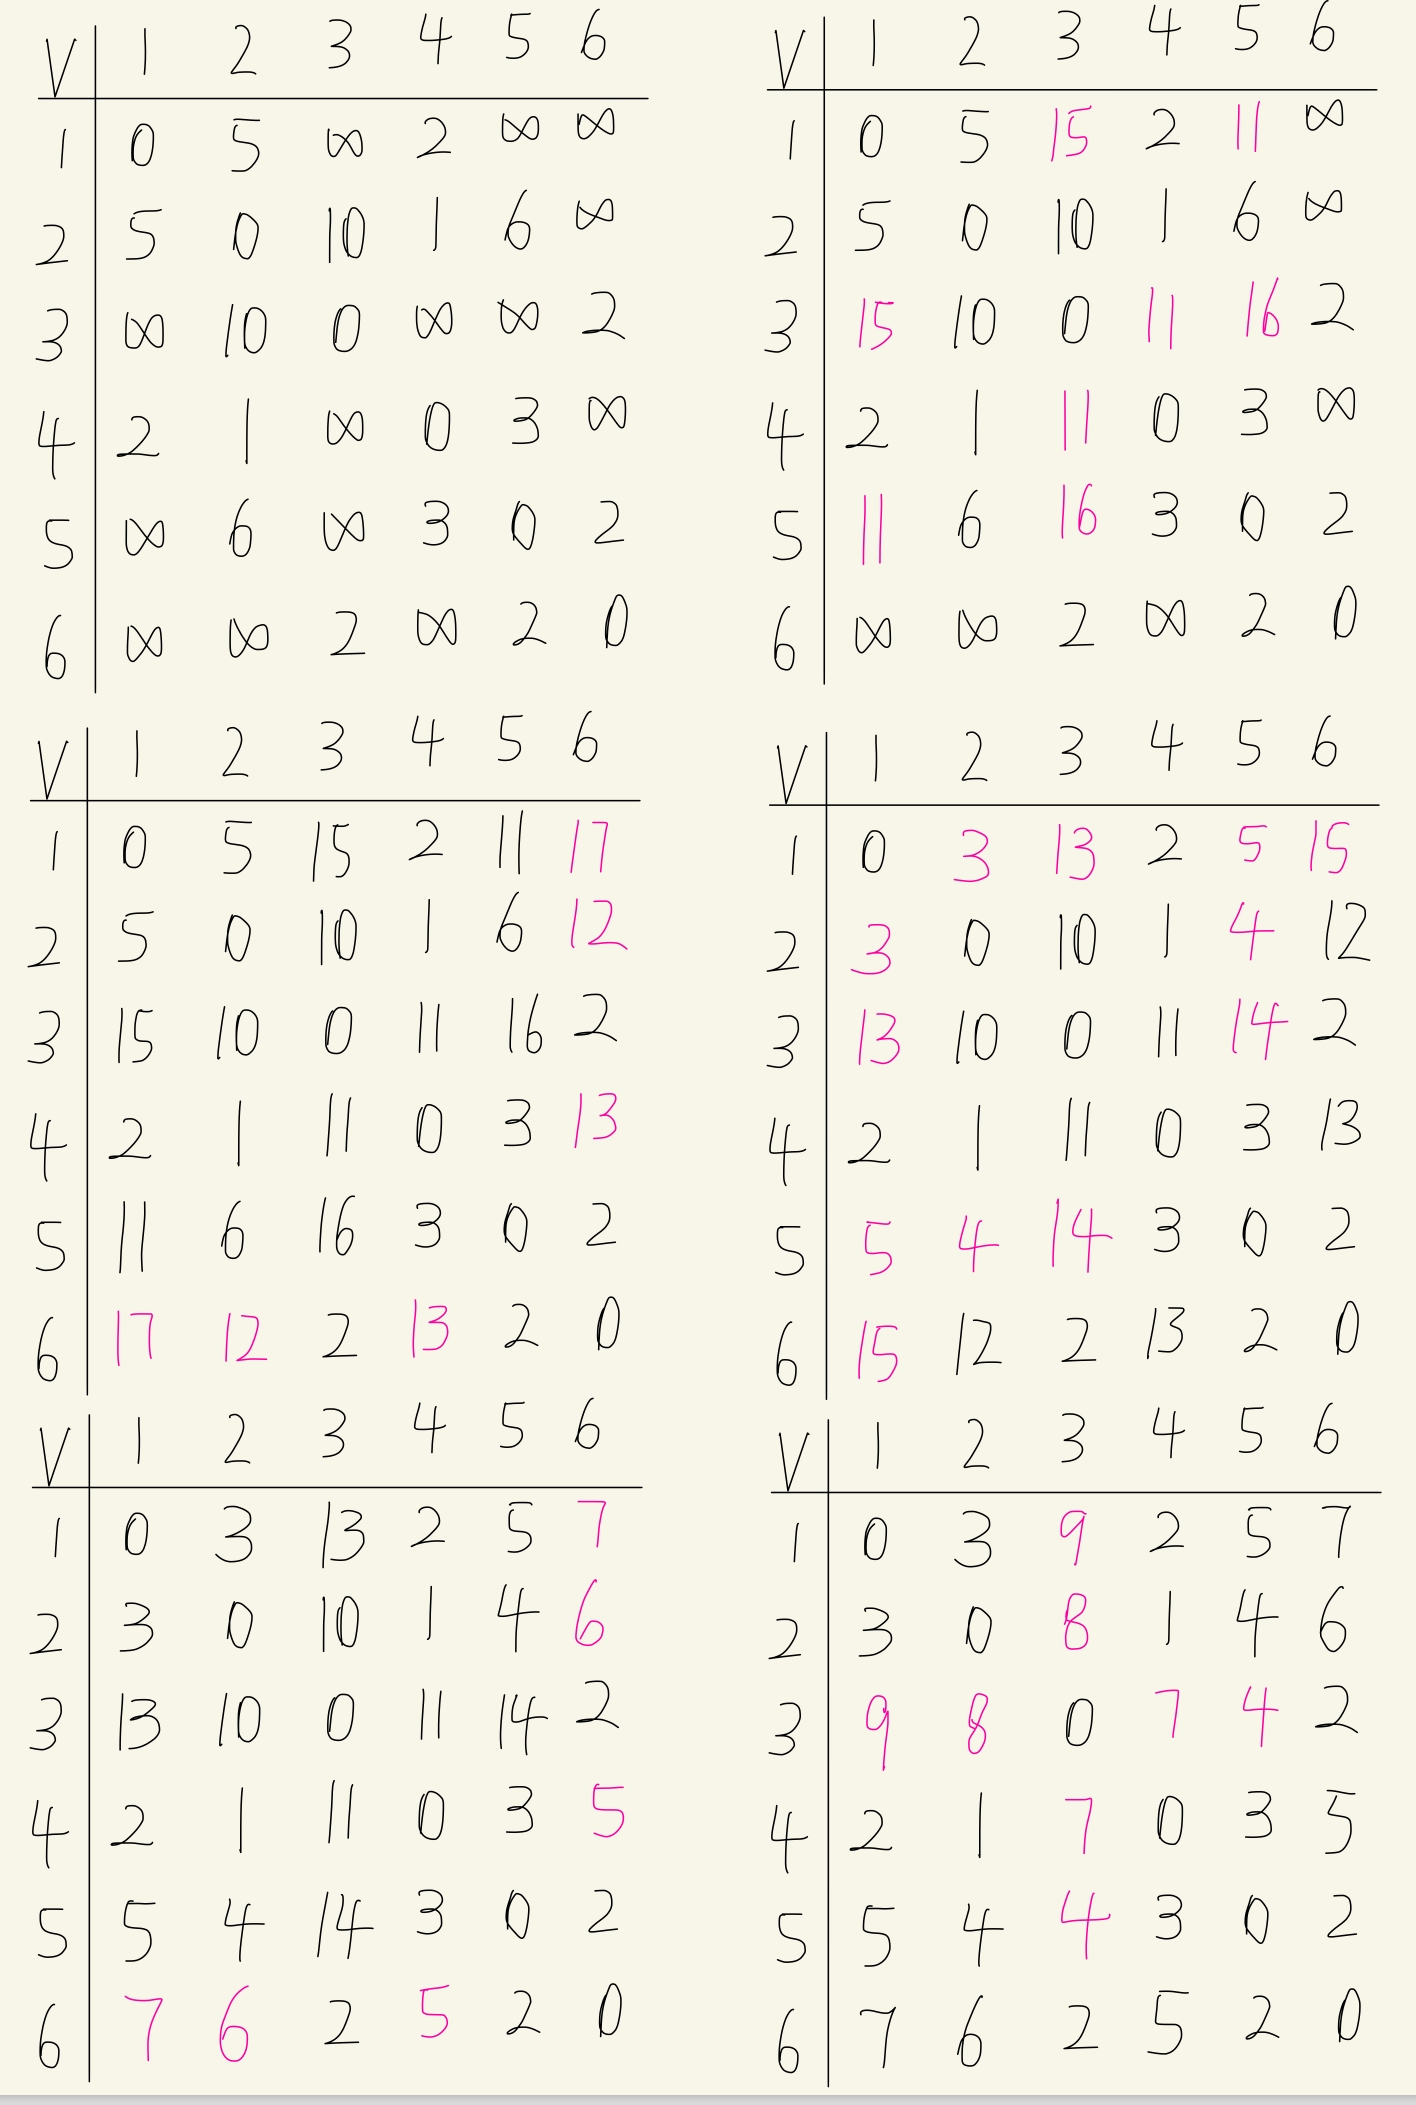 V 1 2 3 4 5 6
1 0 5 ∞ 2 ∞ ∞
2 5 0 10 1 6 ∞
3 ∞ 10 0 ∞ ∞ 2
4 2 1 ∞ 0 3 ∞
5 ∞ 6 ∞ 3 0 2
6 ∞ ∞ 2 ∞ 2 0
V 1 2 3 4 5 6
1 0 5 15 2 11 ∞
2 5 0 10 1 6 ∞
3 15 10 0 11 16 2
4 2 1 11 0 3 ∞
5 11 6 16 3 0 2
6 ∞ ∞ 2 ∞ 2 0
V 1 2 3 4 5 6
1 0 5 15 2 11 17
2 5 0 10 1 6 12
3 15 10 0 11 16 2
4 2 1 11 0 3 13
5 11 6 16 3 0 2
6 17 12 2 13 2 0
V 1 2 3 4 5 6
1 0 3 13 2 5 15
2 3 0 10 1 4 12
3 13 10 0 11 14 2
4 2 1 11 0 3 13
5 5 4 14 3 0 2
6 15 12 2 13 2 0
V 1 2 3 4 5 6
1 0 3 13 2 5 7
2 3 0 10 1 4 6
3 13 10 0 11 14 2
4 2 1 11 0 3 5
5 5 4 14 3 0 2
6 7 6 2 5 2 0
V 1 2 3 4 5 6
1 0 3 9 2 5 7
2 3 0 8 1 4 6
3 9 8 0 7 4 2
4 2 1 7 0 3 5
5 5 4 4 3 0 2
6 7 6 2 5 2 0